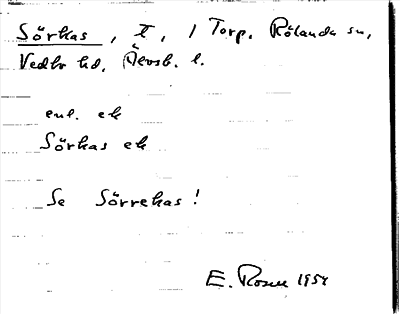 Sörkas, t, 1 Torp. Rölanda sn,
Vedbo hd, Älvsb. l.
enl. ek
Sörkas ek
Se Sörrekas!
E. Rosell 1954